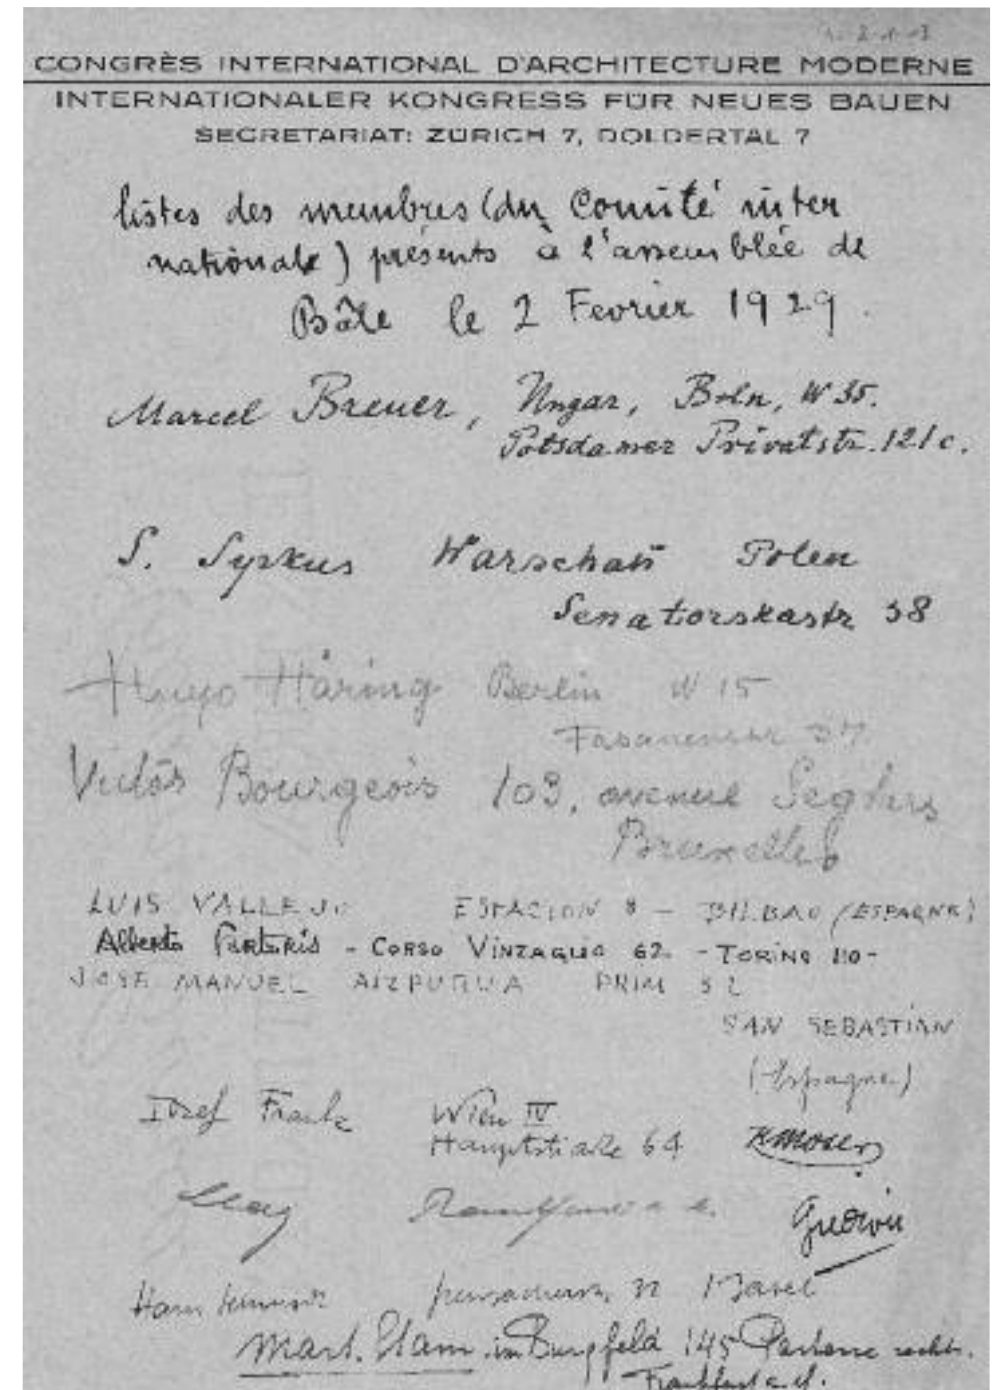 CONGRÈS INTERNATIONAL D'ARCHITECTURE MODERNE
INTERNATIONALER KONGRESS FÜR NEUES BAUEN
SECRETARIAT: ZÜRICH 7, DOLDERTAL 7
listes des membres (du Comité inter
nationale) présents à l'assemblée de
Bâle le 2 Fevrier 1929.
Marcel Breuer, Ungar, Berln, W 35.
Potsdamer Privatstr. 121c.
S. Syrkus Warschau Polen
Senatorskastr 38
Hugo Häring Berlin W 15
Victor Bourgeois 103, avenue Seghers
Bruxelles
LUIS VALLEJO ESTACION 8 - BILBAO (ESPAGNE)
Alberto Sartoris - CORSO VINZAGLIO 62 - TORINO 110 -
JOSE MANUEL AIZPURUA PRIM 32
SAN SEBASTIAN
(Espagne)
Josef Frank Wien IV
Hauptstraße 64 K Moser
May
Hans Basel
Mart. Stam. im Burgfeld 145 Parterre rechts.
Frankfurt a. M.